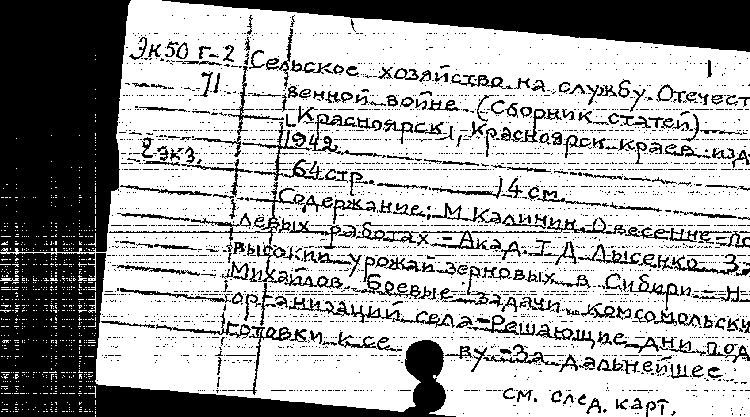 Эк50 Г-2
71
1
Сельское хозяйство на службу Отечест
венной войне (Сборник статей).
[Красноярск], Красноярск. краев. изд
1942.
2 экз.
64 стр. 14 см.
Содержание: М. Калинин. О весенне-по
левых работах. – Акад. Т. Д. Лысенко. За
высокий урожай зерновых в Сибири. – Н.
Михайлов. Боевые задачи комсомольски
организаций села – Решающие дни под
готовки к се ву. – За дальнейшее
см. след. карт.